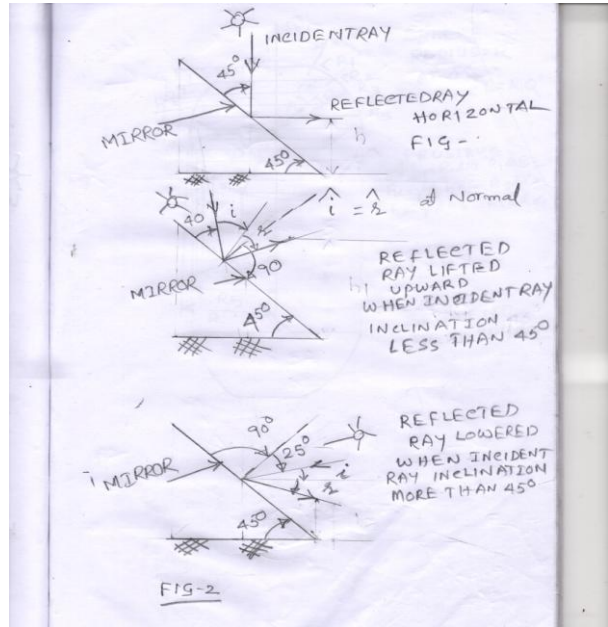 INCIDENTRAY
45°
REFLECTEDRAY
HORIZONTAL
FIG -
MIRROR
h
45°
40
i
r
î = r̂
at Normal
90
MIRROR
h
REFLECTED
RAY LIFTED
UPWARD
WHEN INCIDENTRAY
INCLINATION
LESS THAN 45°
45°
90°
25°
MIRROR
i
r
REFLECTED
RAY LOWERED
WHEN INCIDENT
RAY INCLINATION
MORE THAN 45°
45°
FIG-2